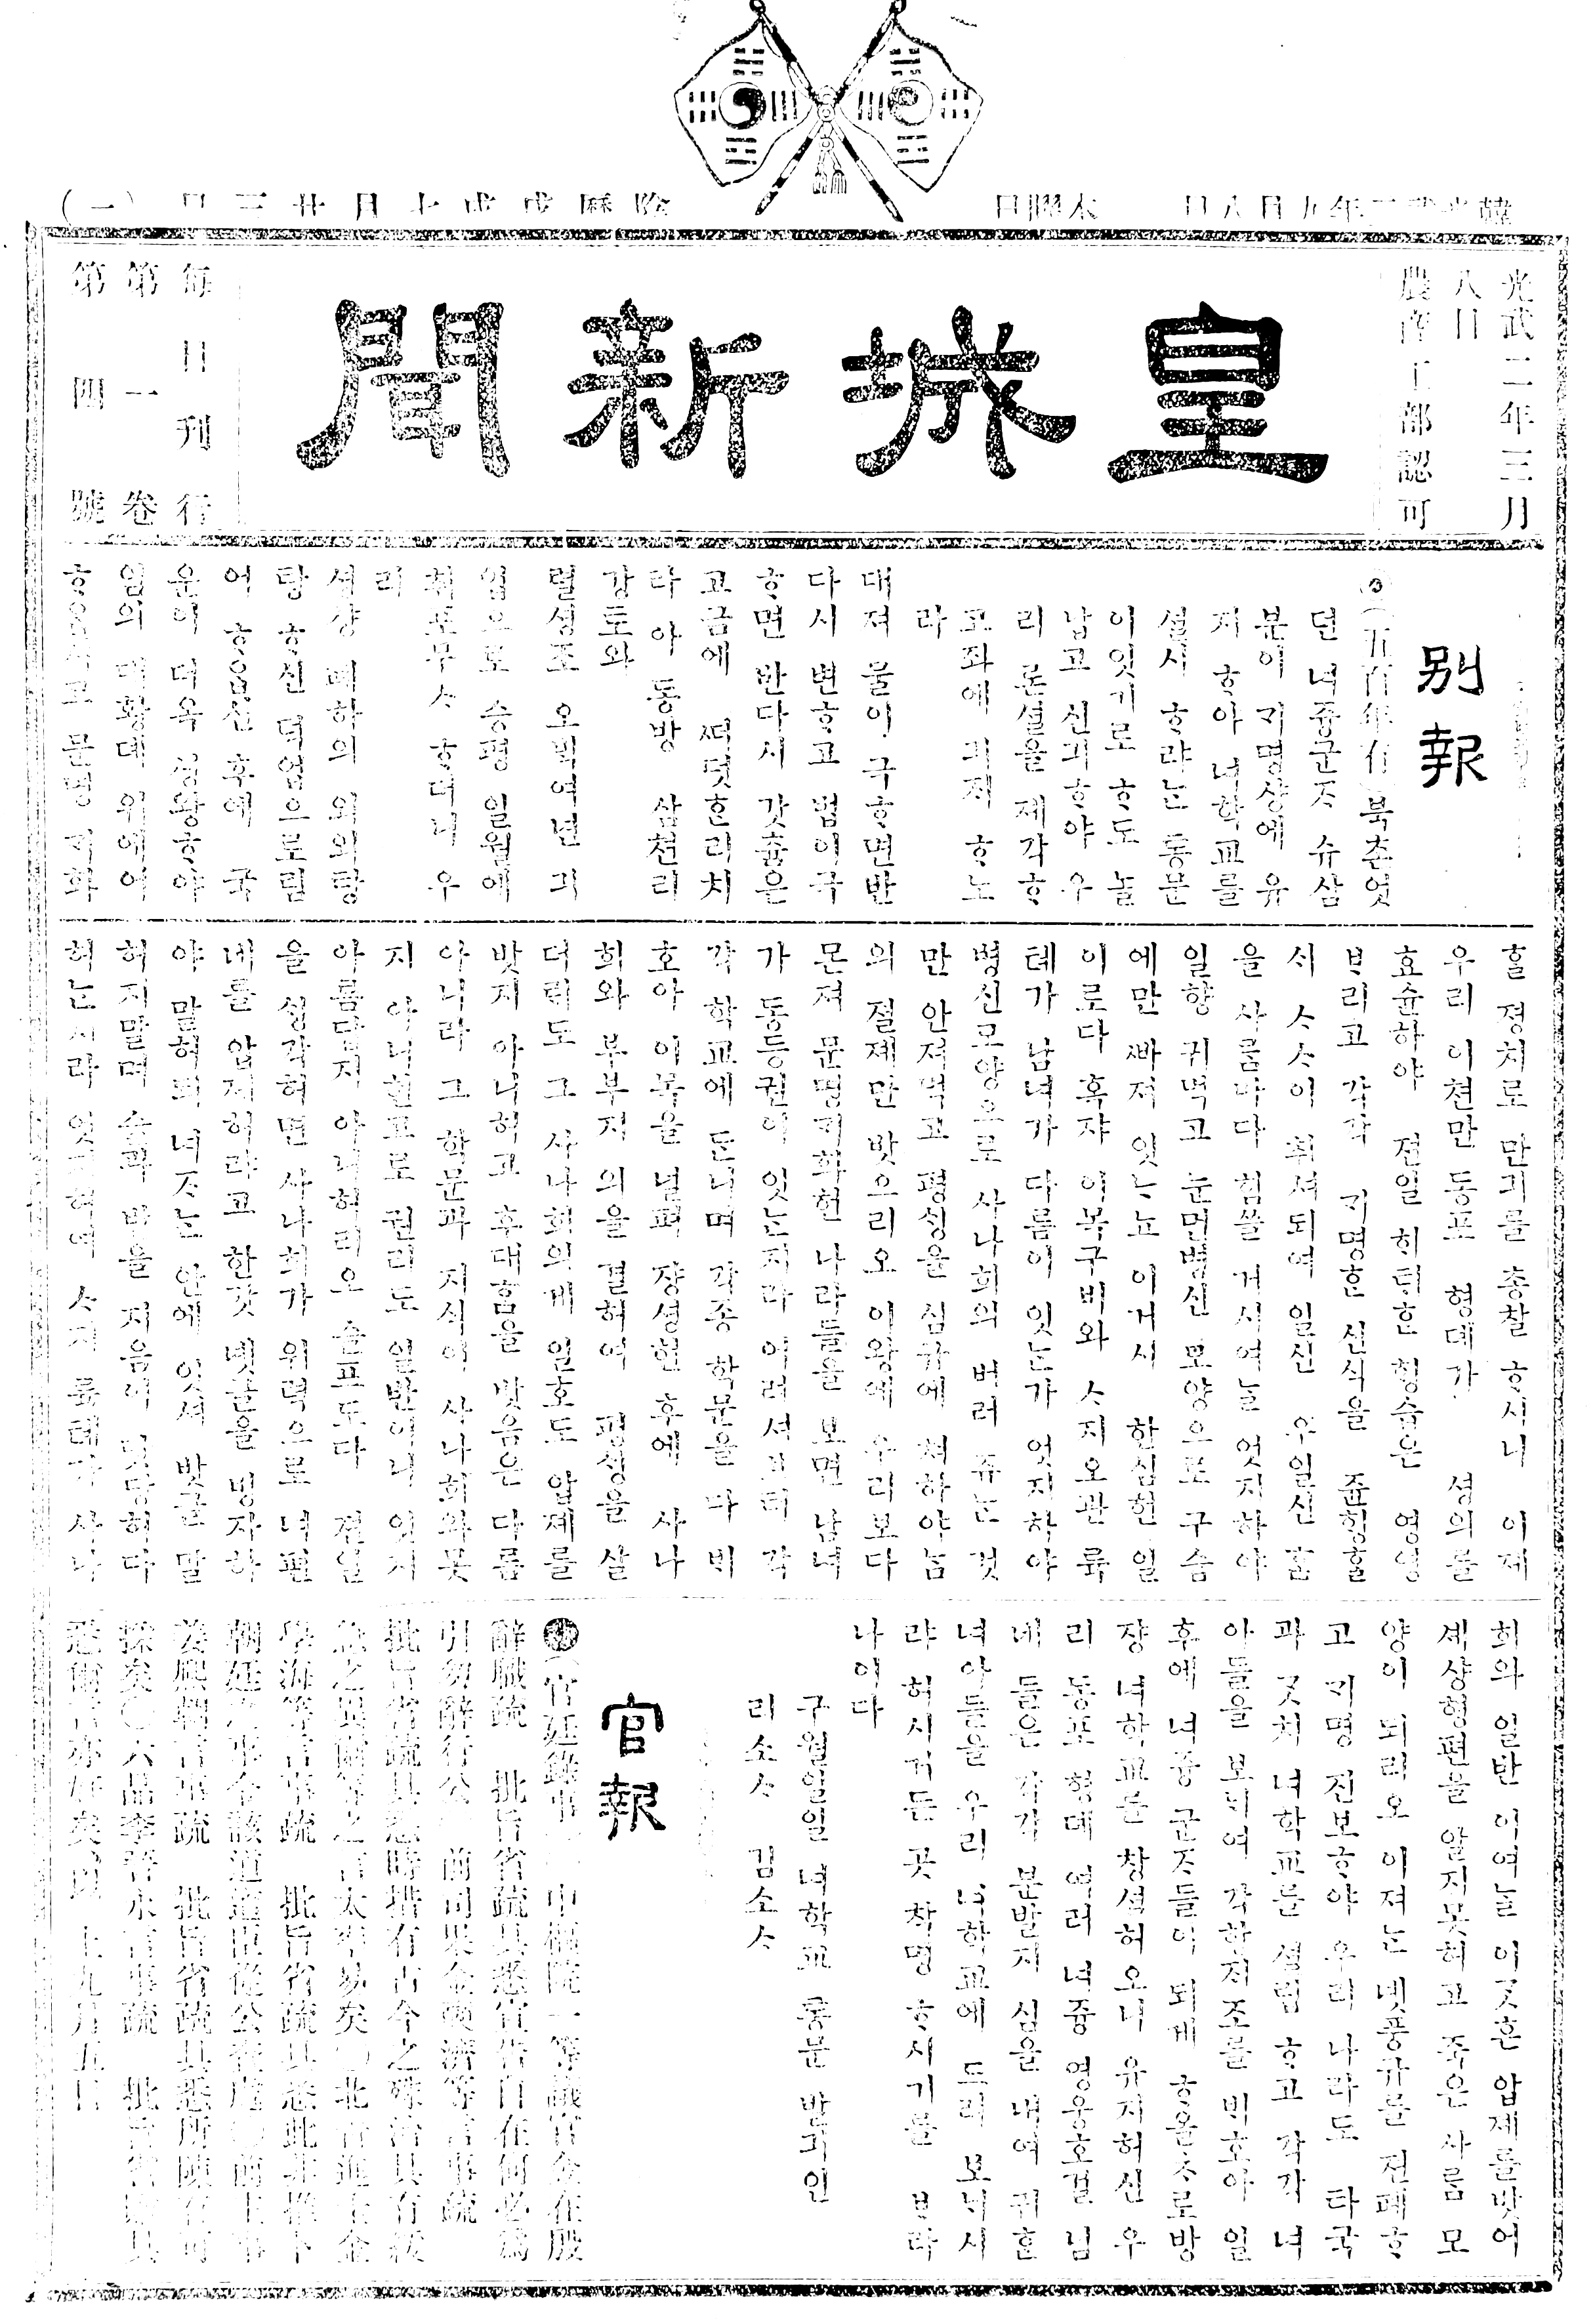 韓光武二年九月八日 木曜日
陰曆戊戌七月廿三日 (一)
光武二年三月
八日
農商工部認可
皇城新聞
每日刊行
第一卷
第四號
別報
(五百年有)북촌엇
던 녀즁군ᄌᆞ 슈삼
분이 ᄀᆡ명상에 유
지 ᄒᆞ야 녀학교를
셜시 ᄒᆞ랴ᄂᆞᆫ 통문
이잇기로 ᄒᆞ도 놀
납고 신긔ᄒᆞ야 우
리 론셜을 졔각ᄒᆞ
고좌에 긔ᄌᆡ ᄒᆞ노
라
대져 물이 극ᄒᆞ면반
다시 변ᄒᆞ고 법이극
ᄒᆞ면 반다시 갓츔은
고금에 ᄯᅥᄯᅥᆺᄒᆞᆫ리치
라 아 동방 삼쳔리
강토와
렬셩조 오ᄇᆡᆨ여년 긔
업으로 승평 일월에
취포무ᄉᆞ ᄒᆞ더니 우
리
셩샹 폐하의 외외탕
탕 ᄒᆞ신 덕업으로림
어 ᄒᆞ옵신 후에 국
운이 더옥 셩왕ᄒᆞ야
임의 대황뎨 위에어
ᄒᆞ옵시고 문명 ᄀᆡ화
ᄒᆞᆯ 졍치로 만긔를 총찰 ᄒᆞ시니 이졔
우리 이쳔만 동포 형뎨가 셩의를
효슌하야 젼일 ᄒᆡᄐᆡᄒᆞᆫ ᄒᆡᆼ습은 영영
ᄇᆞ리고 각각 ᄀᆡ명ᄒᆞᆫ 신식을 쥰ᄒᆡᆼᄒᆞᆯ
ᄉᆡ ᄉᆞᄉᆞ이 취셔되여 일신 우일신 ᄒᆞᆷ
을 사ᄅᆞᆷ마다 힘쓸 거시여ᄂᆞᆯ 엇지하야
일향 귀먹고 눈먼병신 모양으로 구습
에만 ᄲᅡ져 잇ᄂᆞ뇨 이거시 한심한 일
이로다 혹쟈 이목구비와 ᄉᆞ지오관 륙
톄가 남녀가 다름이 잇ᄂᆞᆫ가 엇지하야
병신모양으로 사나희의 버러 쥬ᄂᆞᆫ 것
만 안져먹고 평ᄉᆡᆼ을 심규에 쳐하야ᄂᆞᆷ
의 졀졔만 밧으리오 이왕에 우리보다
몬져 문명ᄀᆡ화헌 나라들을 보면 남녀
가 동등권이 잇ᄂᆞᆫ지라 어려셔브터 각
각 학교에 ᄃᆞᆫ니며 각종 학문을 다 ᄇᆡ
호아 이목을 널펴 쟝셩헌 후에 사나
희와 부부지의을 결허여 평ᄉᆡᆼ을 살
더ᄅᆡ도 그 사나희의게 일호도 압졔를
밧지 아니허고 후대ᄒᆞᆷ을 밧음은 다름
아니라 그 학문과 지식이 사나희와못
지 아니헌고로 권리도 일반이니 엇지
아름답지 아니허리오 슬프도다 젼일
을 ᄉᆡᆼ각허면 사나희가 위력으로 녀편
네를 압졔허랴고 한갓 녯글을 빙자하
야 말허되 녀ᄌᆞᄂᆞᆫ 안에 잇셔 밧글 말
허지말며 술과 밥을 지음이 맛당허다
허ᄂᆞᆫ지라 엇지허여 ᄉᆞ지 륙톄가 사나
희와 일반 이여ᄂᆞᆯ 이ᄀᆞᆺᄒᆞᆫ 압졔를밧어
셰상형편을 알지못허고 죽은 사ᄅᆞᆷ 모
양이 되리오 이져ᄂᆞᆫ 녯풍규를 젼폐ᄒᆞ
고 ᄀᆡ명 진보ᄒᆞ야 우리 나라도 타국
과 ᄀᆞᆺ치 녀학교를 셜립 ᄒᆞ고 각각 녀
아들을 보ᄂᆡ여 각항ᄌᆡ조를 ᄇᆡ호아 일
후에 녀즁 군ᄌᆞ들이 되게 ᄒᆞ올ᄎᆞ로방
쟝 녀학교를 창셜허오니 유지허신 우
리 동포 형뎨 여러 녀즁 영웅호걸 님
네 들은 각각 분발지 심을 내여 귀ᄒᆞᆫ
녀아들을 우리 녀학교에 드려 보ᄂᆡ시
랴 허시거든 곳 착명 ᄒᆞ시기를 ᄇᆞ라
나이다
구월일일 녀학교 통문 발긔인
리소ᄉᆞ 김소ᄉᆞ
官報
(官廷錄事) 中樞院一等議官金在殷
辭職疏 批旨省疏具悉宜告自在何必爲
引勿辭行公 前司果金奭濟等言事疏
批旨省疏具悉時措有古今之殊治具有
急之異爾等之言太率易矣〇北靑進士金
學海等言事疏 批旨省疏具悉此非推下
朝廷
姜熙朝言事疏 批旨省疏具悉所陳有可
採矣〇六品李 言事疏 批旨省疏具
悉爾言亦好矣 以上九月五日